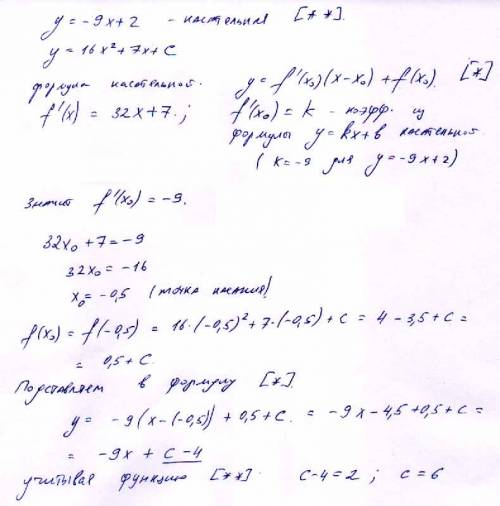 y = -9x + 2 - касательная [**].
y = 16x² + 7x + c
формула касательной. y = f'(x₀)(x - x₀) + f(x₀). [*]
f'(x) = 32x + 7.; f'(x₀) = k - коэфф. из
формулы y = kx + b касательной.
(k = -9 для y = -9x + 2)
Значит f'(x₀) = -9.
32x₀ + 7 = -9
32x₀ = -16
x₀ = -0,5 (точка касания)
f(x₀) = f(-0,5) = 16·(-0,5)² + 7·(-0,5) + c = 4 - 3,5 + c =
= 0,5 + c.
Подставляем в формулу [*].
y = -9(x - (-0,5)) + 0,5 + c. = -9x - 4,5 + 0,5 + c =
= -9x + c - 4
учитывая функцию [**]. c - 4 = 2; c = 6